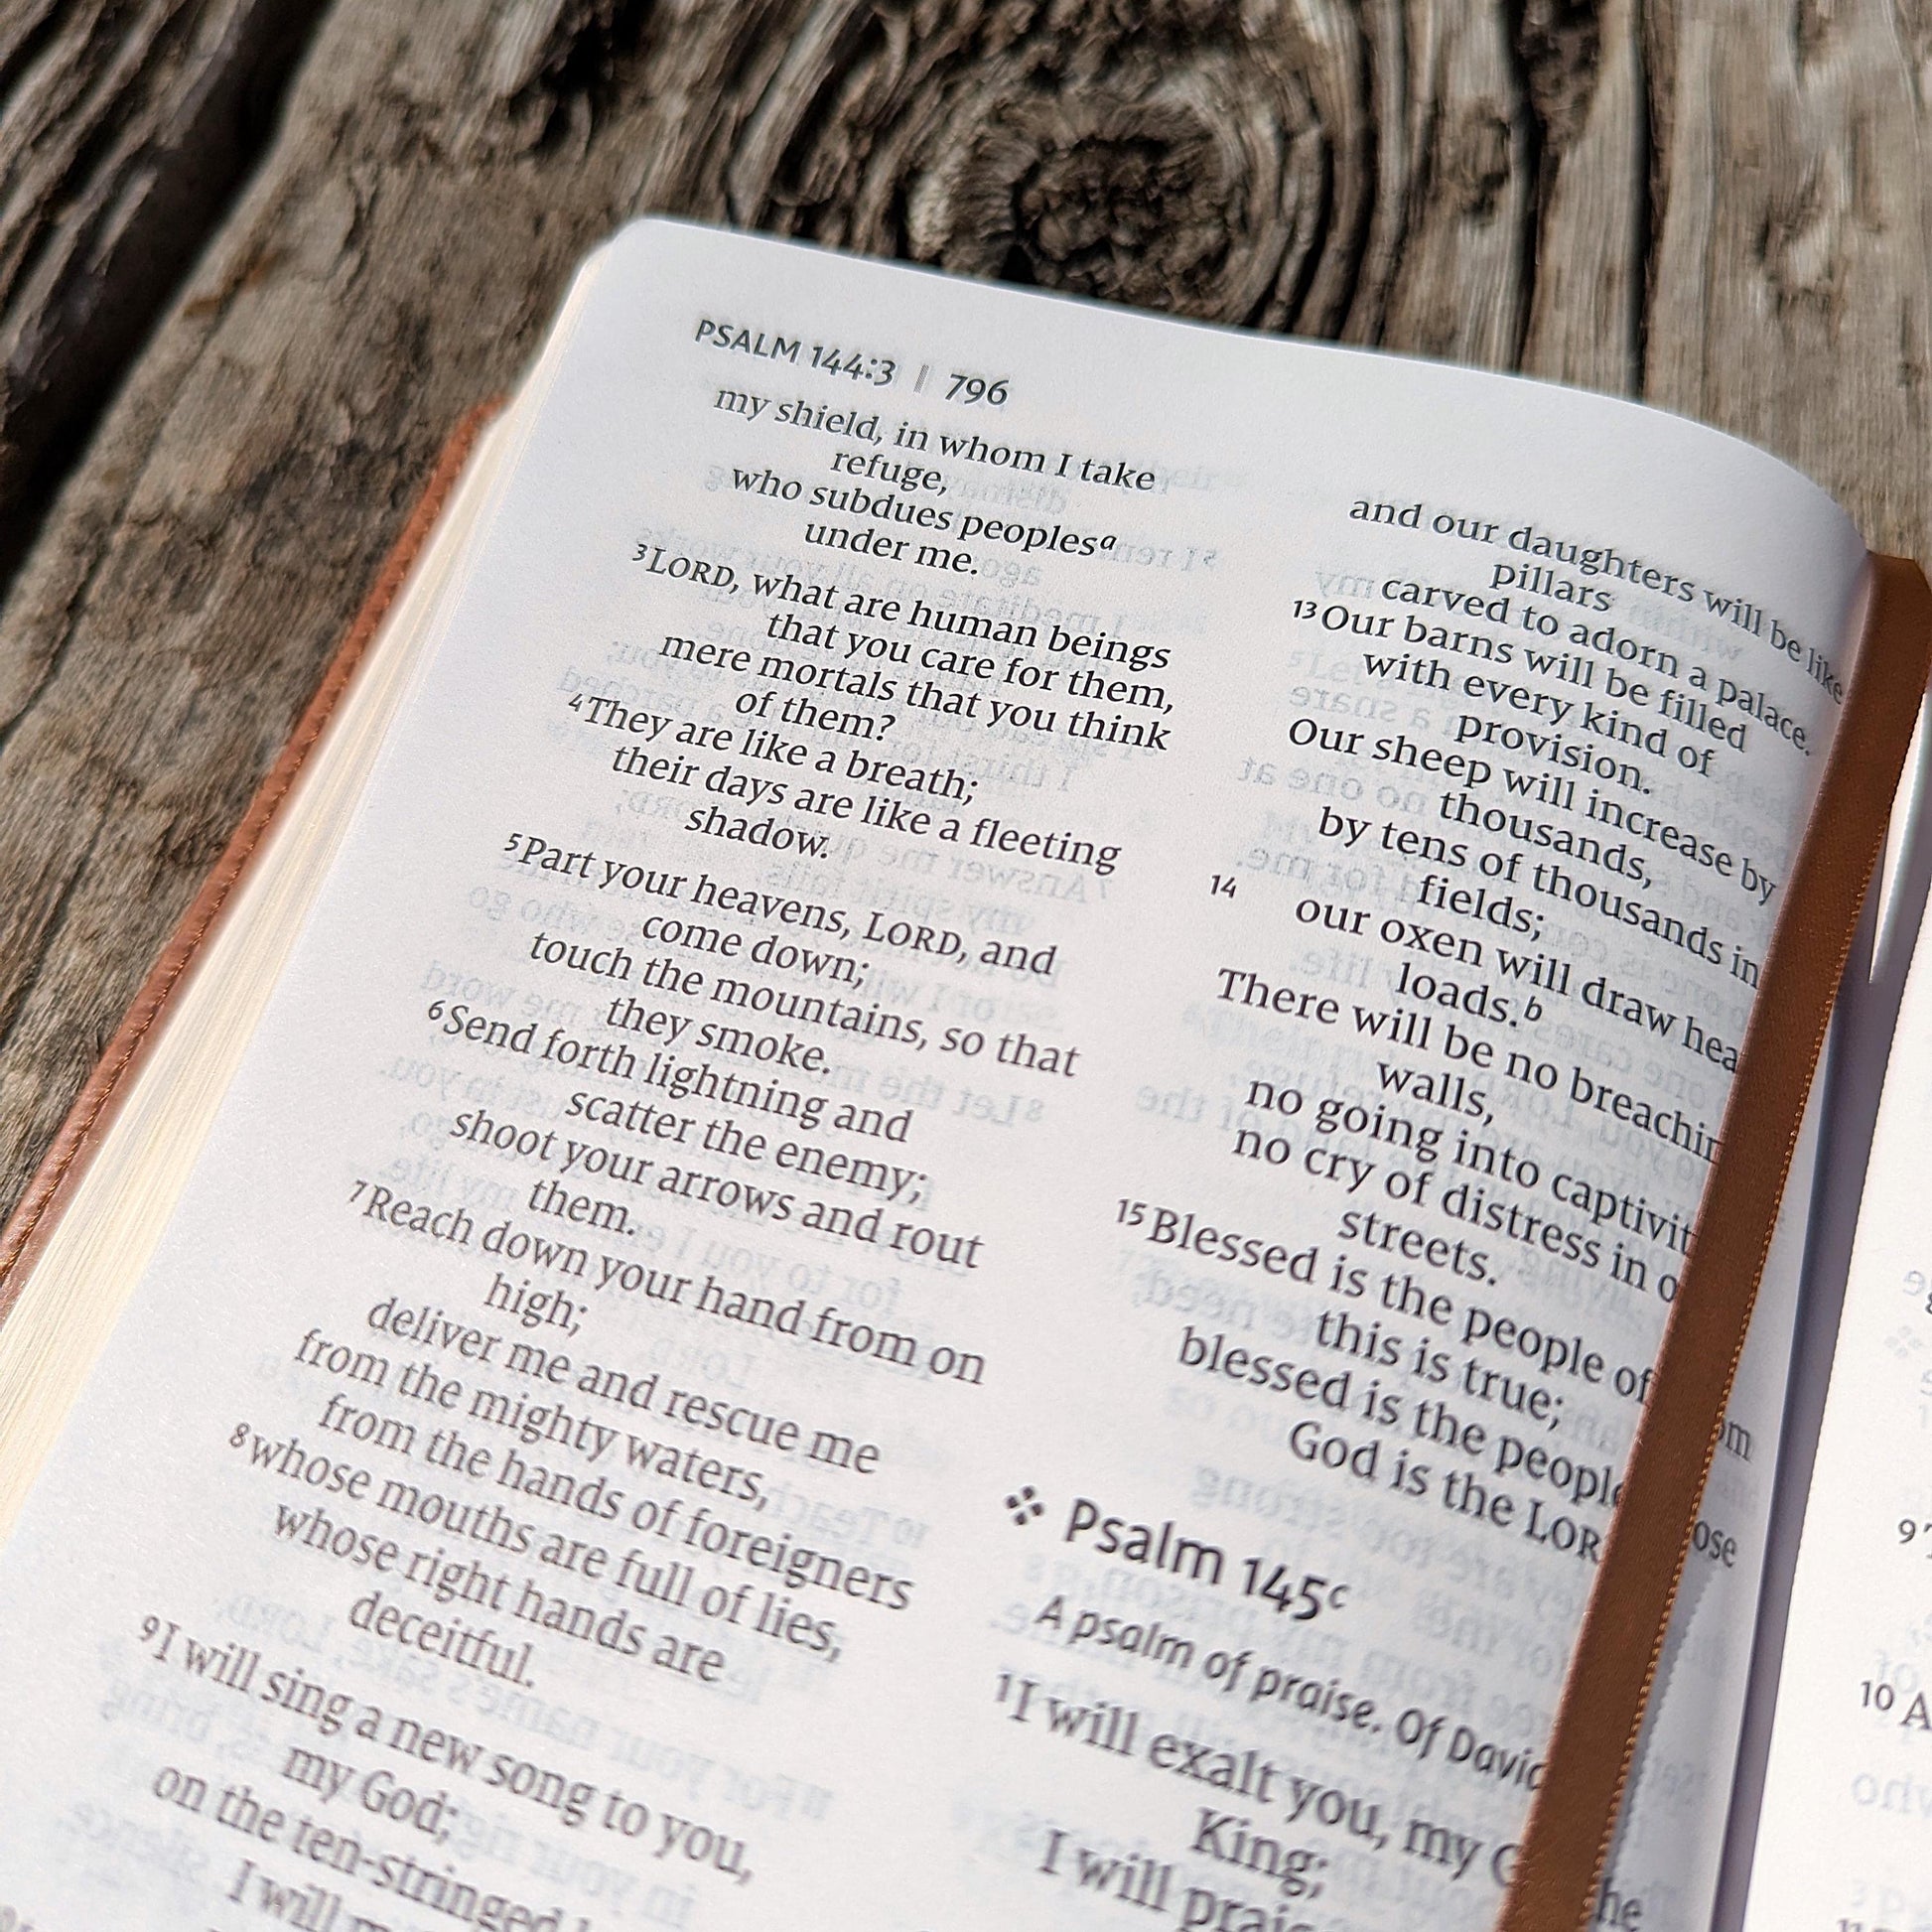 PSALM 144:3 | 796
my shield, in whom I take
refuge,
who subdues peoplesᵃ
under me.
³LORD, what are human beings
that you care for them,
mere mortals that you think
of them?
⁴They are like a breath;
their days are like a fleeting
shadow.
⁵Part your heavens, LORD, and
come down;
touch the mountains, so that
they smoke.
⁶Send forth lightning and
scatter the enemy;
shoot your arrows and rout
them.
⁷Reach down your hand from on
high;
deliver me and rescue me
from the mighty waters,
from the hands of foreigners
⁸whose mouths are full of lies,
whose right hands are
deceitful.
⁹I will sing a new song to you,
my God;
on the ten-stringed
I will
and our daughters will be like
pillars
carved to adorn a palace.
¹³Our barns will be filled
with every kind of
provision.
Our sheep will increase by
thousands,
by tens of thousands in
fields;
¹⁴ our oxen will draw
loads.ᵇ
There will be no
walls,
no going into
no cry of distress in
streets.
¹⁵Blessed is the people of
this is true;
blessed is the
God is the
Psalm 145ᶜ
A psalm of praise. Of
¹I will exalt you, my
King;
I will
9
10